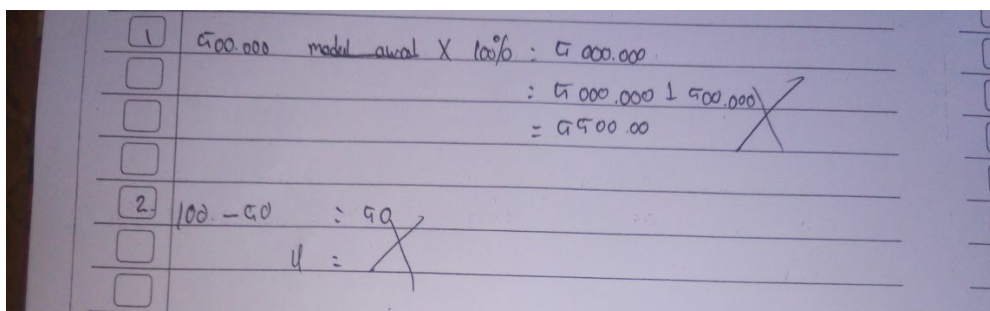 1 500.000 modal awal X 100% : 5 000.000
: 5 000.000 + 500.000
= 5500.00
2. 100. - 50 : 50
4 =